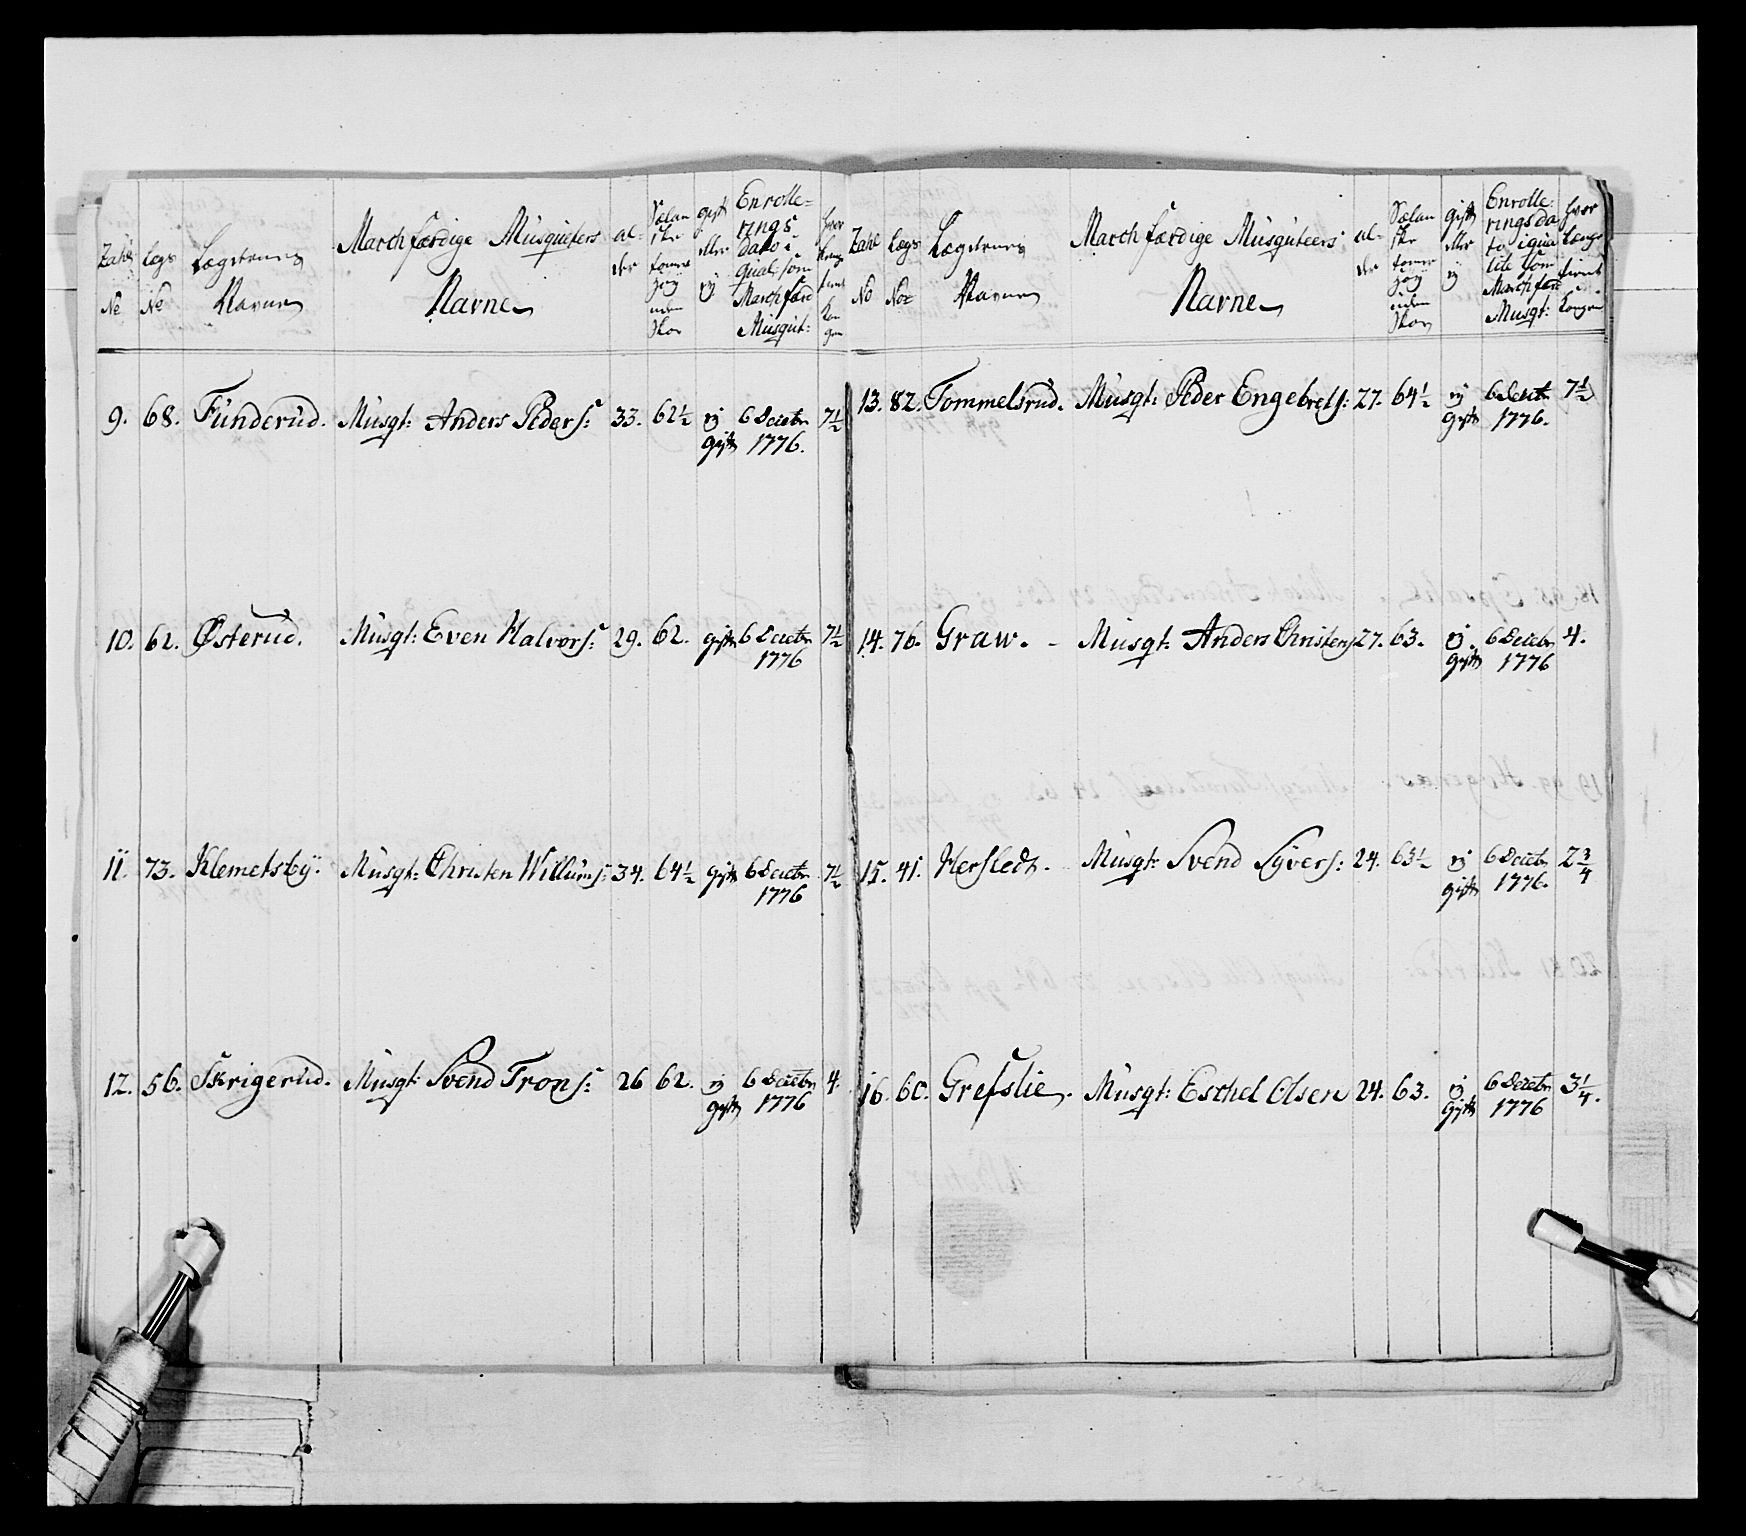 Zahl No
Legs No
Lægdernes Navne
Marchfærdige Musqueters Navne
al-der
gift eller ej
Enrolle-rings dato i qual: som Marchfærd Musqut:
9. 68. Funderud. Musqt: Anders Peders: 33. 62½ ej gift 6 Decebr 1776. 7½
10. 62. Østerud. Musqt: Even Halvors: 29. 62. gift 6 Decebr 1776 7½
11. 73. Klemetsby. Musqt: Christen Willums: 34. 64½ gift 6 Decebr 1776 7½
12. 56. Skrigerud. Musqt: Svend Trons: 26 62. ej gift 6 Decebr 1776 4.
Zahl No
Legs No:
Lægdernes Navne
Marchfærdige Musquteers Navne
al-der
gift eller ej
Enrolle-rings da to i qua lite som Marchfær Musqt:
13. 82. Tommelsrud. Musqt: Peder Engebrets: 27. 64½ ej gift 6 Decebr 1776. 7½
14. 76. Graw. - Musqt: Anders Christens 27. 63. ej gift 6 Decebr 1776 4.
15. 41. Hersledt. Musqt: Svend Syvers: 24. 63½ ej gift 6 Decebr 1776. 2¾
16. 60. Grefslie. Musqt: Eschel Olsen 24. 63. ej gift 6 Decebr 1776 3¼.